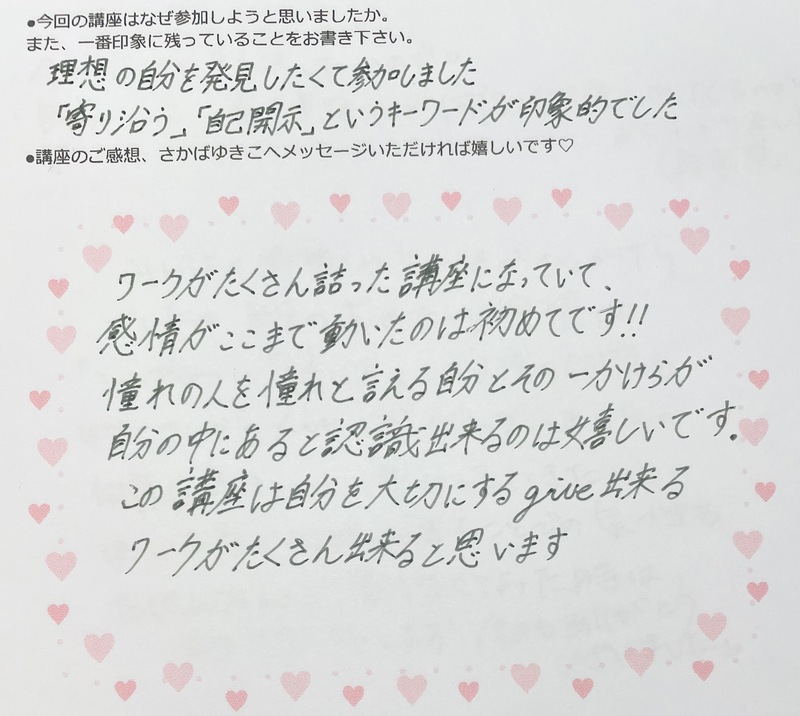 ●今回の講座はなぜ参加しようと思いましたか。
また、一番印象に残っていることをお書き下さい。
理想の自分を発見したくて参加しました
「寄り沿う」「自己開示」というキーワードが印象的でした
●講座のご感想、さかばゆきこへメッセージいただければ嬉しいです♡
ワークがたくさん詰った講座になっていて、
感情がここまで動いたのは初めてです!!
憧れの人を憧れと言える自分とその一かけらが
自分の中にあると認識出来るのは嬉しいです。
この講座は自分を大切にするgive出来る
ワークがたくさん出来ると思います